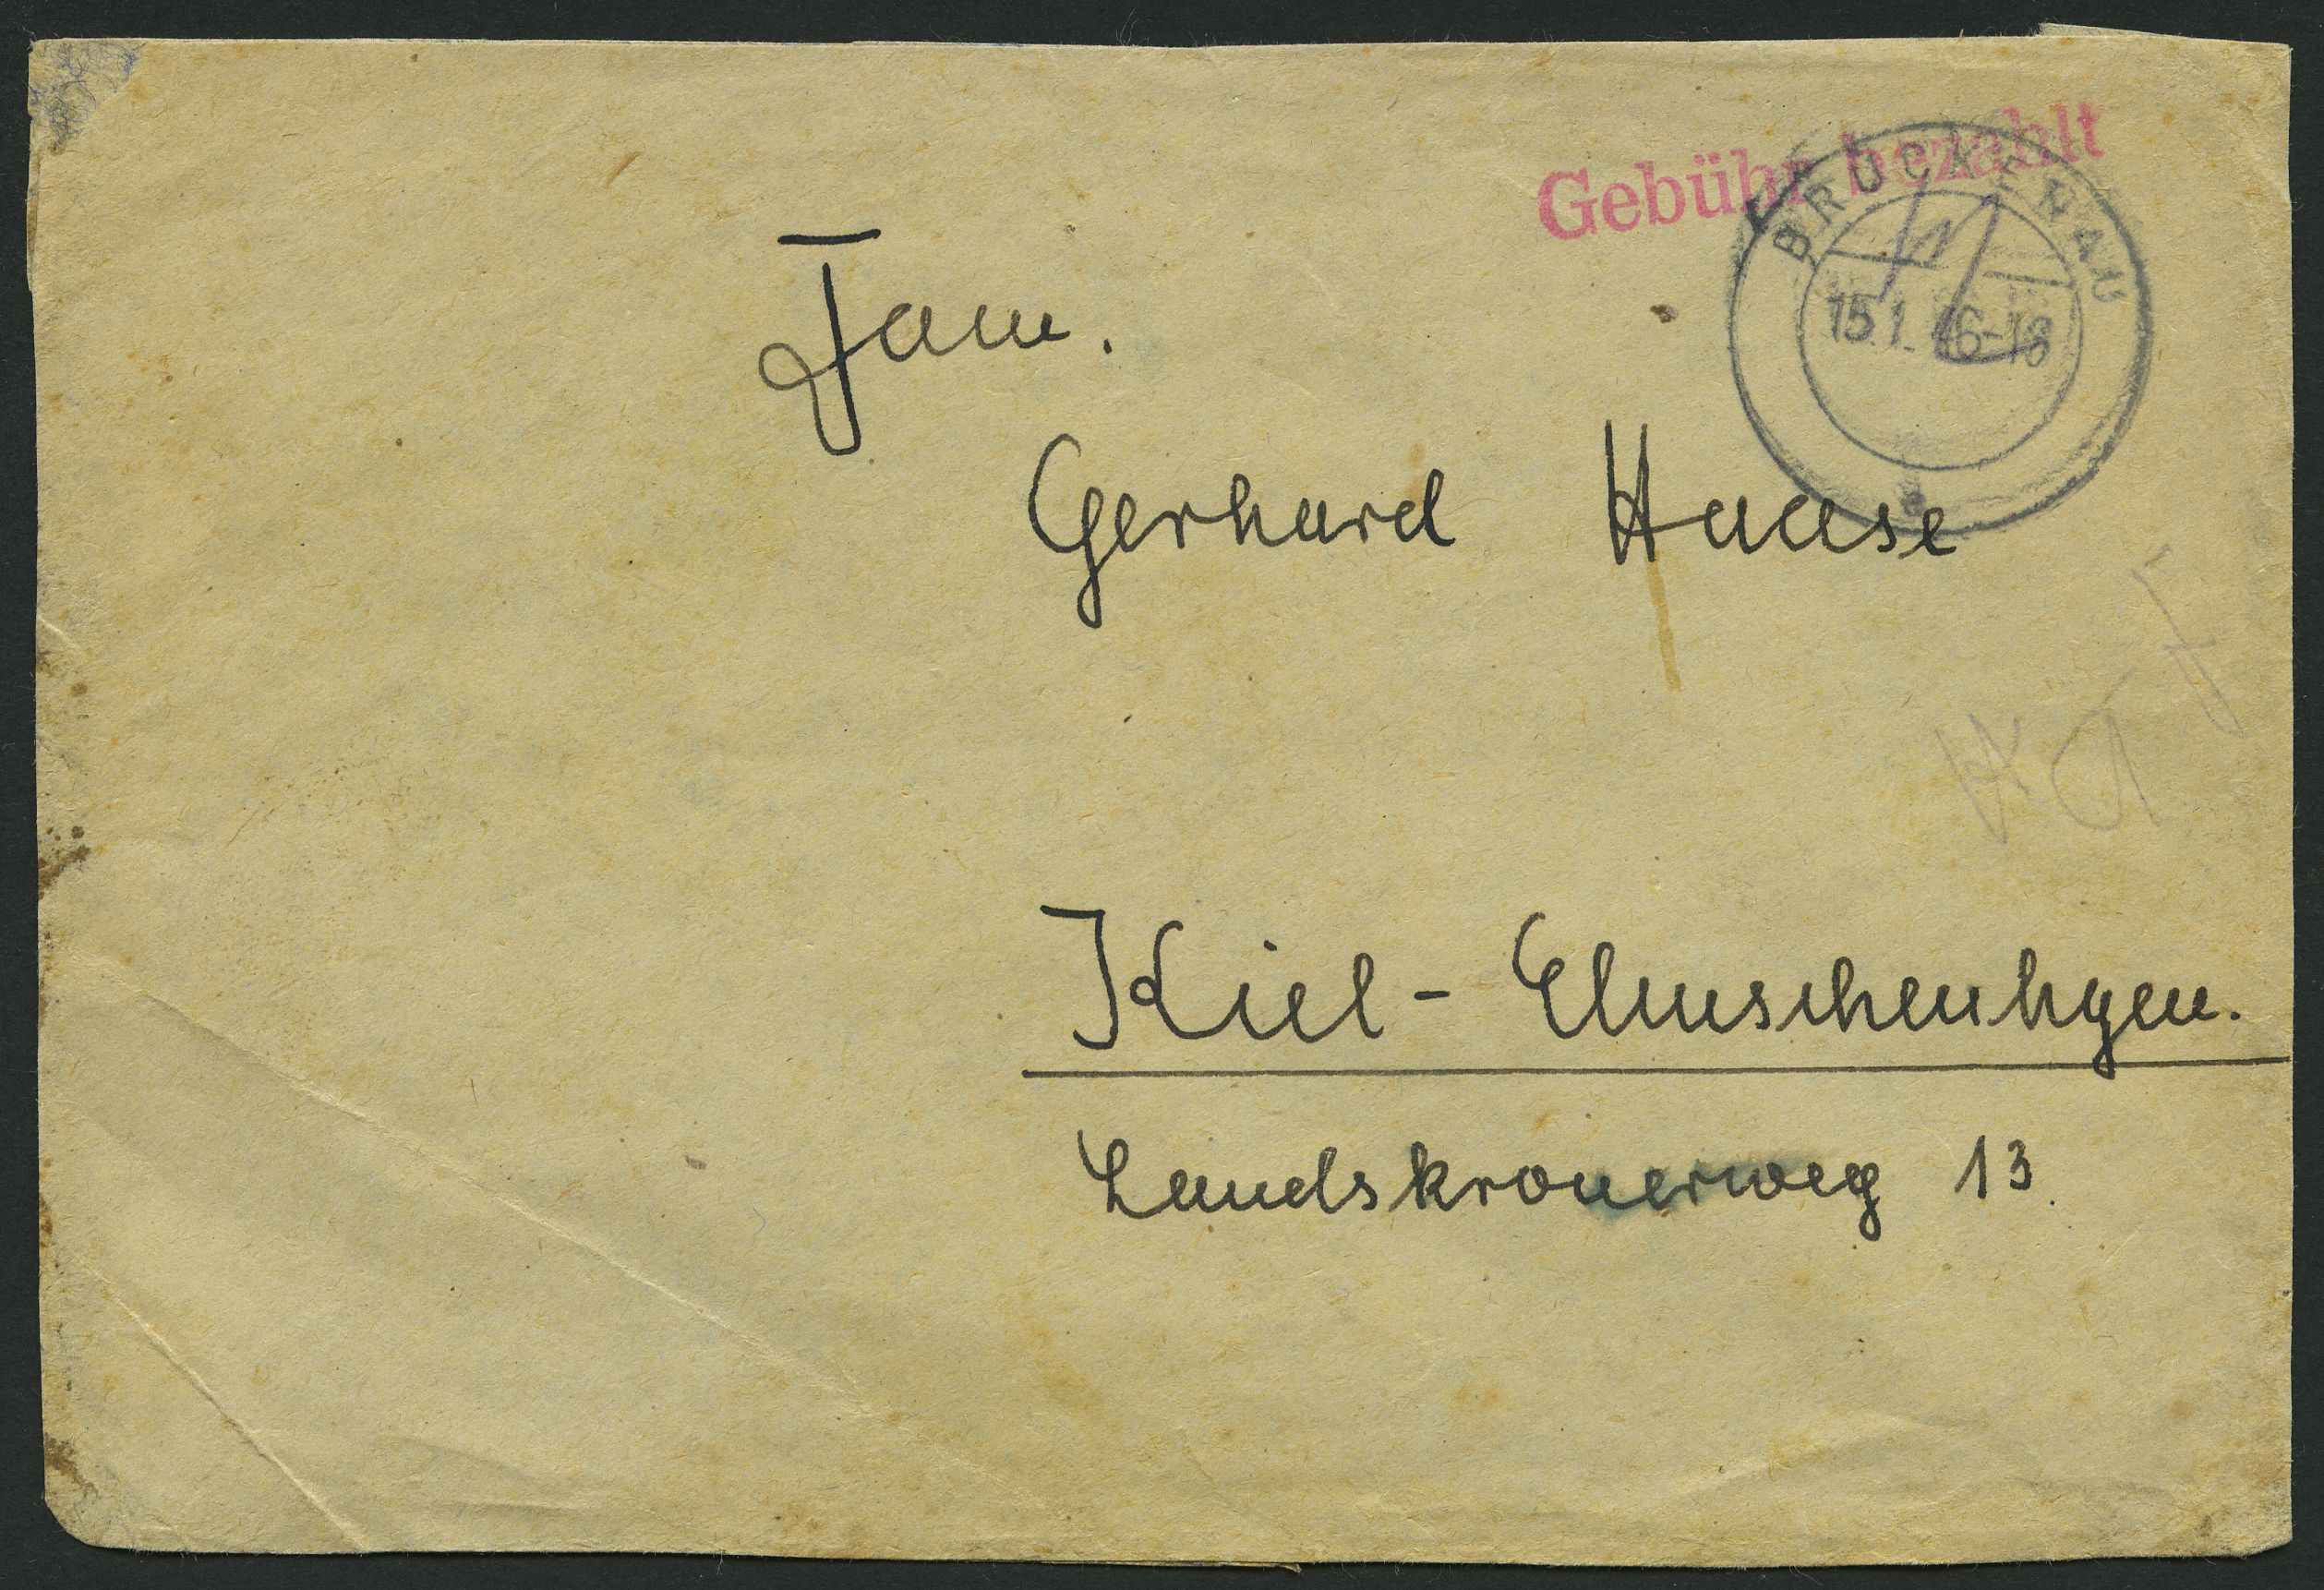 Gebühr bezahlt
BRÜCKENAU
15.1.46-18
a
Fam.
Gerhard Haase
Kiel - Elmschenhgen.
Landskronerweg 13.